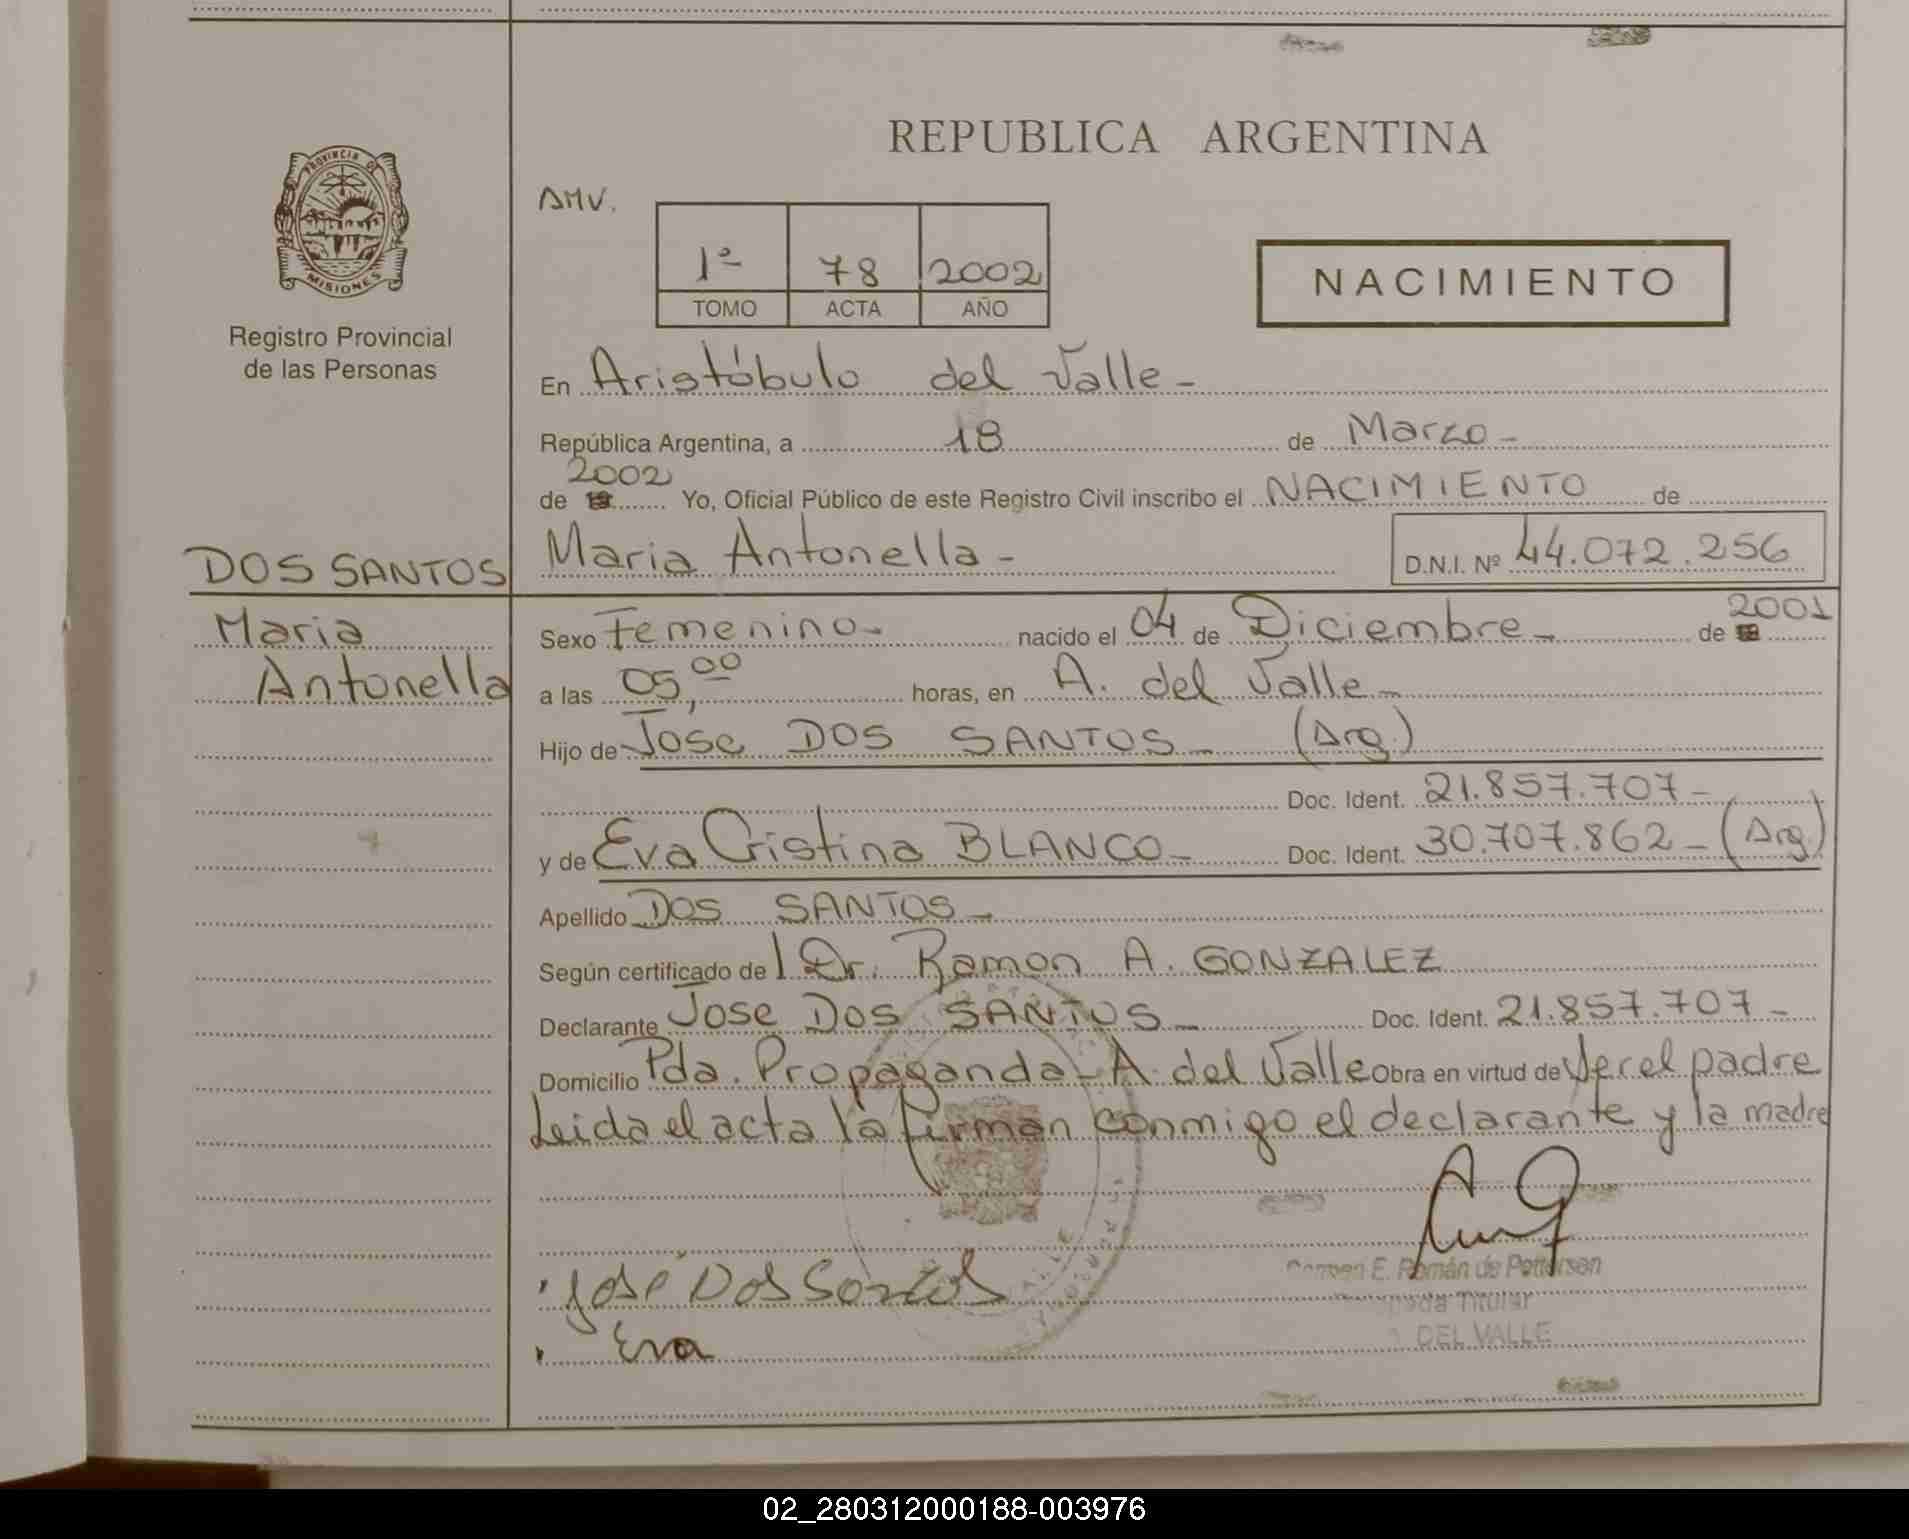 REPUBLICA ARGENTINA
PROVINCIA DE
MISIONES
Registro Provincial
de las Personas
AMV.
1º 78 2002
TOMO ACTA AÑO
NACIMIENTO
En Aristóbulo del Valle -
República Argentina, a 18 de Marzo -
2002
de 19 Yo, Oficial Público de este Registro Civil inscribo el NACIMIENTO de
DOS SANTOS
Maria Antonella -
D.N.I. Nº 44.072.256
Maria
Antonella
Sexo Femenino - nacido el 04 de Diciembre - de 2001
a las 05,00 horas, en A. del Valle -
Hijo de Jose DOS SANTOS - (Arg.)
Doc. Ident. 21.857.707 -
y de Eva Cristina BLANCO - Doc. Ident. 30.707.862 - (Arg.)
Apellido DOS SANTOS -
Según certificado del Dr. Ramon A. GONZALEZ
Declarante Jose DOS SANTOS - Doc. Ident. 21.857.707 -
Domicilio Pda. Propaganda - A. del Valle Obra en virtud de ser el padre
Leida el acta la firman conmigo el declarante y la madre
José Dos Santos
Eva
Carmen E. Román de Pettersen
Titular
DEL VALLE
02_280312000188-003976